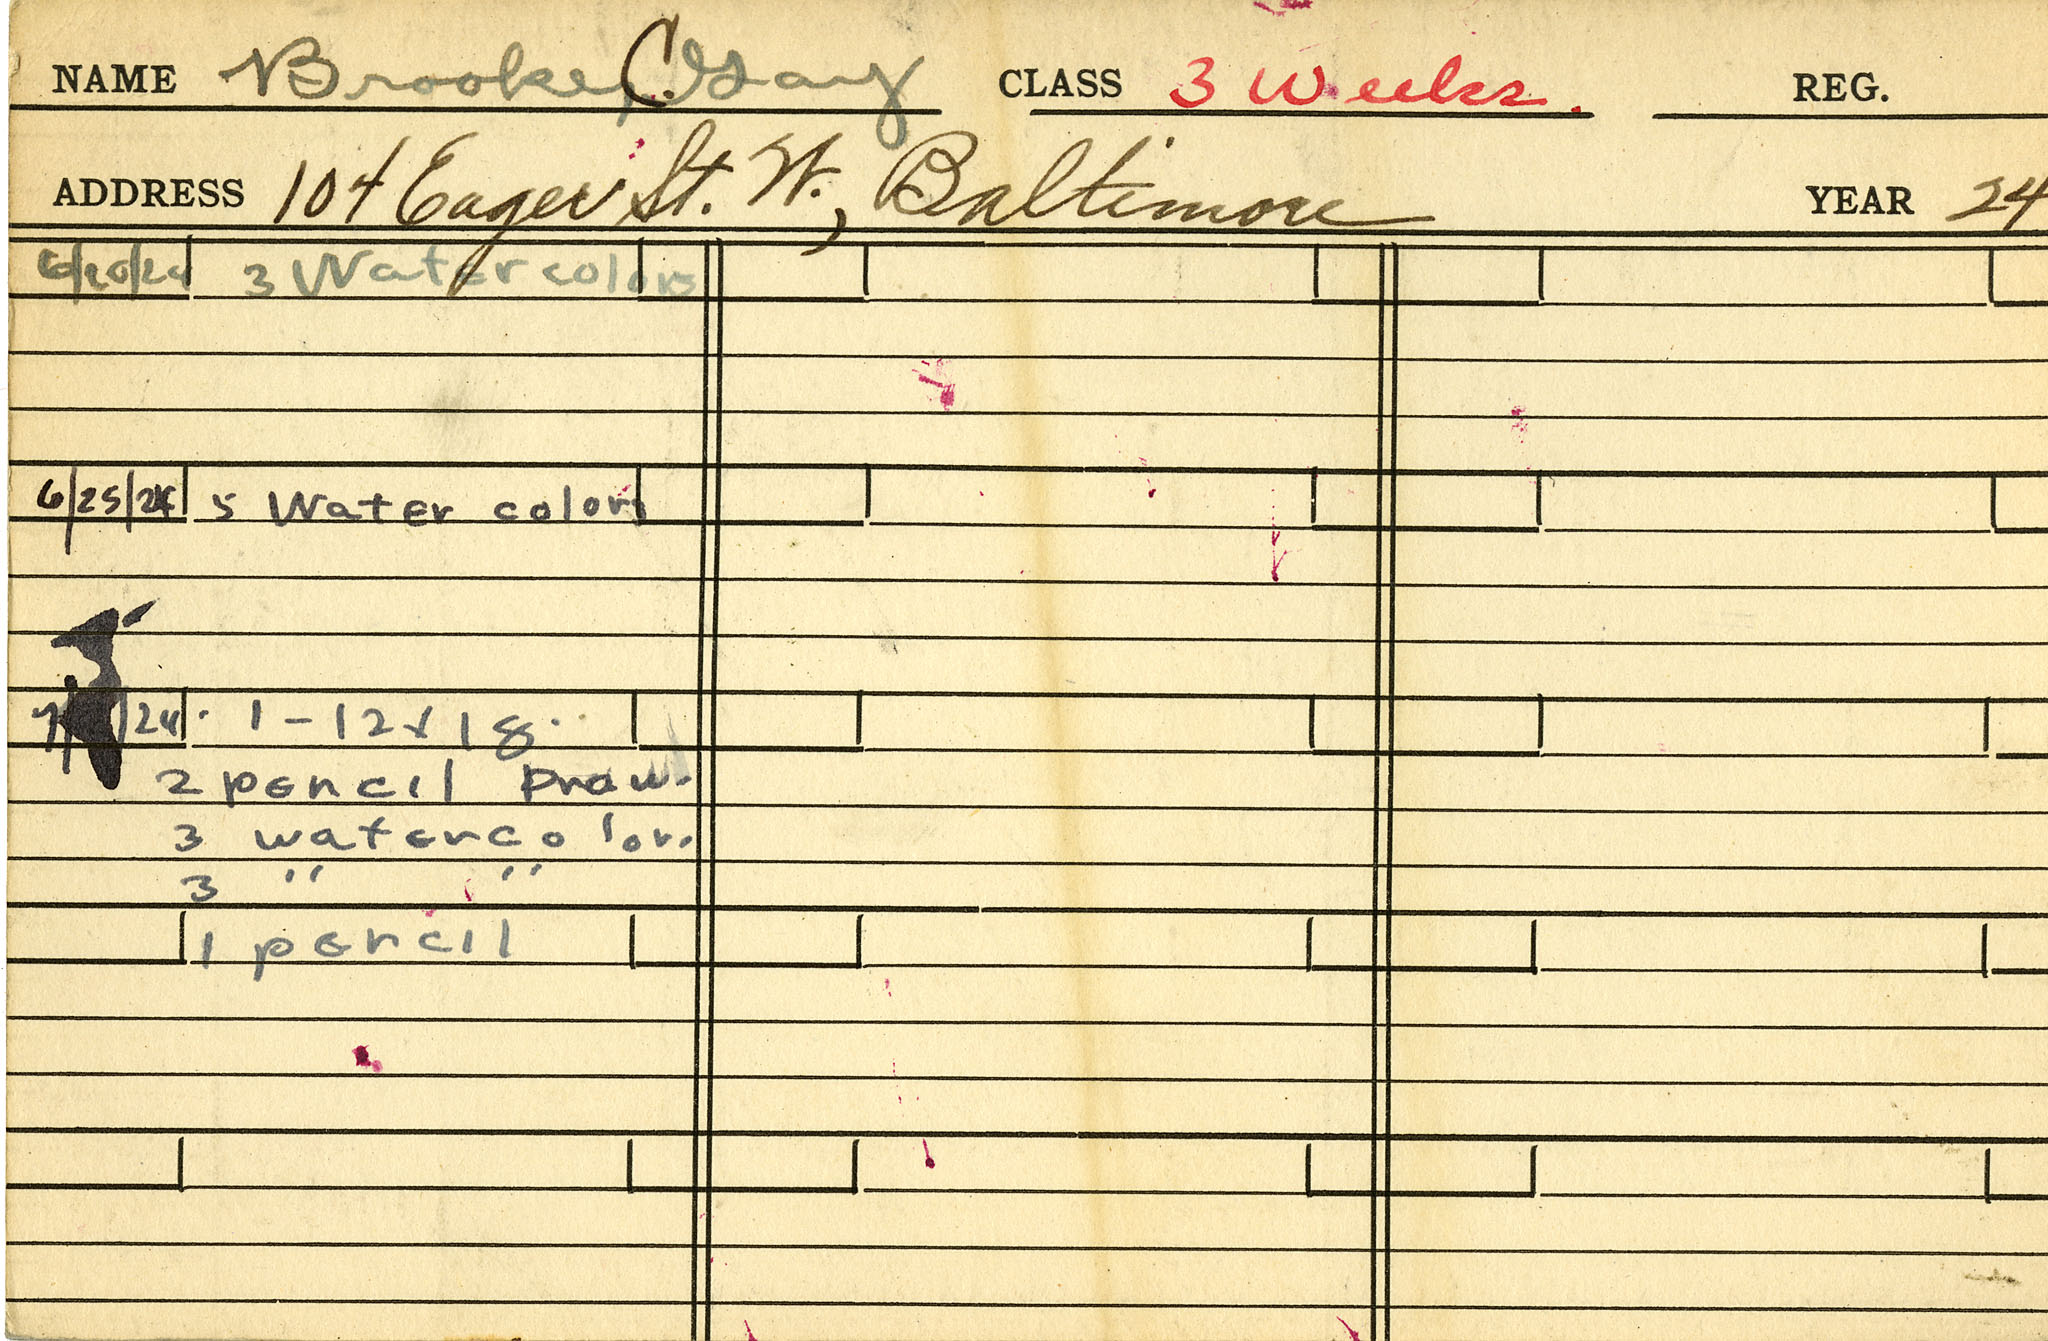 NAME Brooke, C. Gay CLASS 3 Weeks. REG.
ADDRESS 104 Eager St. W., Baltimore YEAR 24
6/20/24 3 Water colors
6/25/24 5 Water colors
7/ /24 1 - 12 x 18.
2 pencil Draw.
3 watercolor.
3 " "
1 pencil